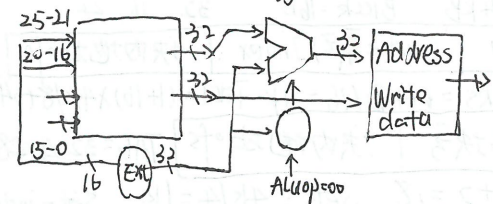 25-21
20-16
15-0
16
Ext
32
32
32
32
Address
Write
data
ALUOP=00